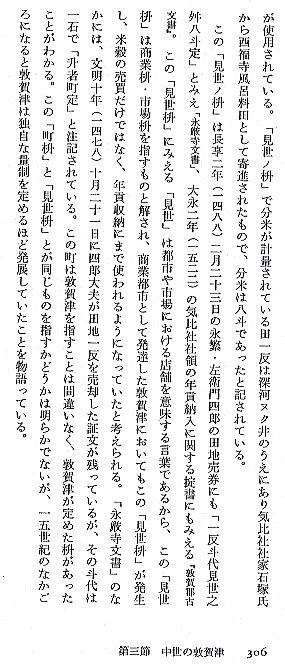 が使用されている。「見世ノ枡」で分米が計量されている田一反は深河ヌク井のうえにあり気比社社家石塚氏
から西福寺風呂料田として寄進されたもので、分米は八斗であったと記されている。
この「見世ノ枡」は長享二年（一四八八）二月二十三日の永繁・左衛門四郎の田地売券にも「一反斗代見世之
舛八斗定」とみえ「永厳寺文書」、大永二年（一五二二）の気比社社領の年貢納入に関する掟書にもみえる『敦賀郡古
文書』。この「見世枡」にみえる「見世」は都市や市場における店舗を意味する言葉であるから、この「見世
枡」は商業枡・市場枡を指すものと解され、商業都市として発達した敦賀津においてもこの「見世枡」が発生
し、米穀の売買だけではなく、年貢収納にまで使われるようになっていたと考えられる。「永厳寺文書」のな
かには、文明十年（一四七八）十月二十一日に四郎大夫が田地一反を売却した証文が残っているが、その斗代は
一石で「升者町定」と注記されている。この町は敦賀津を指すことは間違いなく、敦賀津が定めた枡があった
ことがわかる。この「町枡」と「見世枡」とが同じものを指すかどうかは明らかでないが、一五世紀のなかご
ろになると敦賀津は独自な量制を定めるほど発展していたことを物語っている。
第三節　中世の敦賀津
306